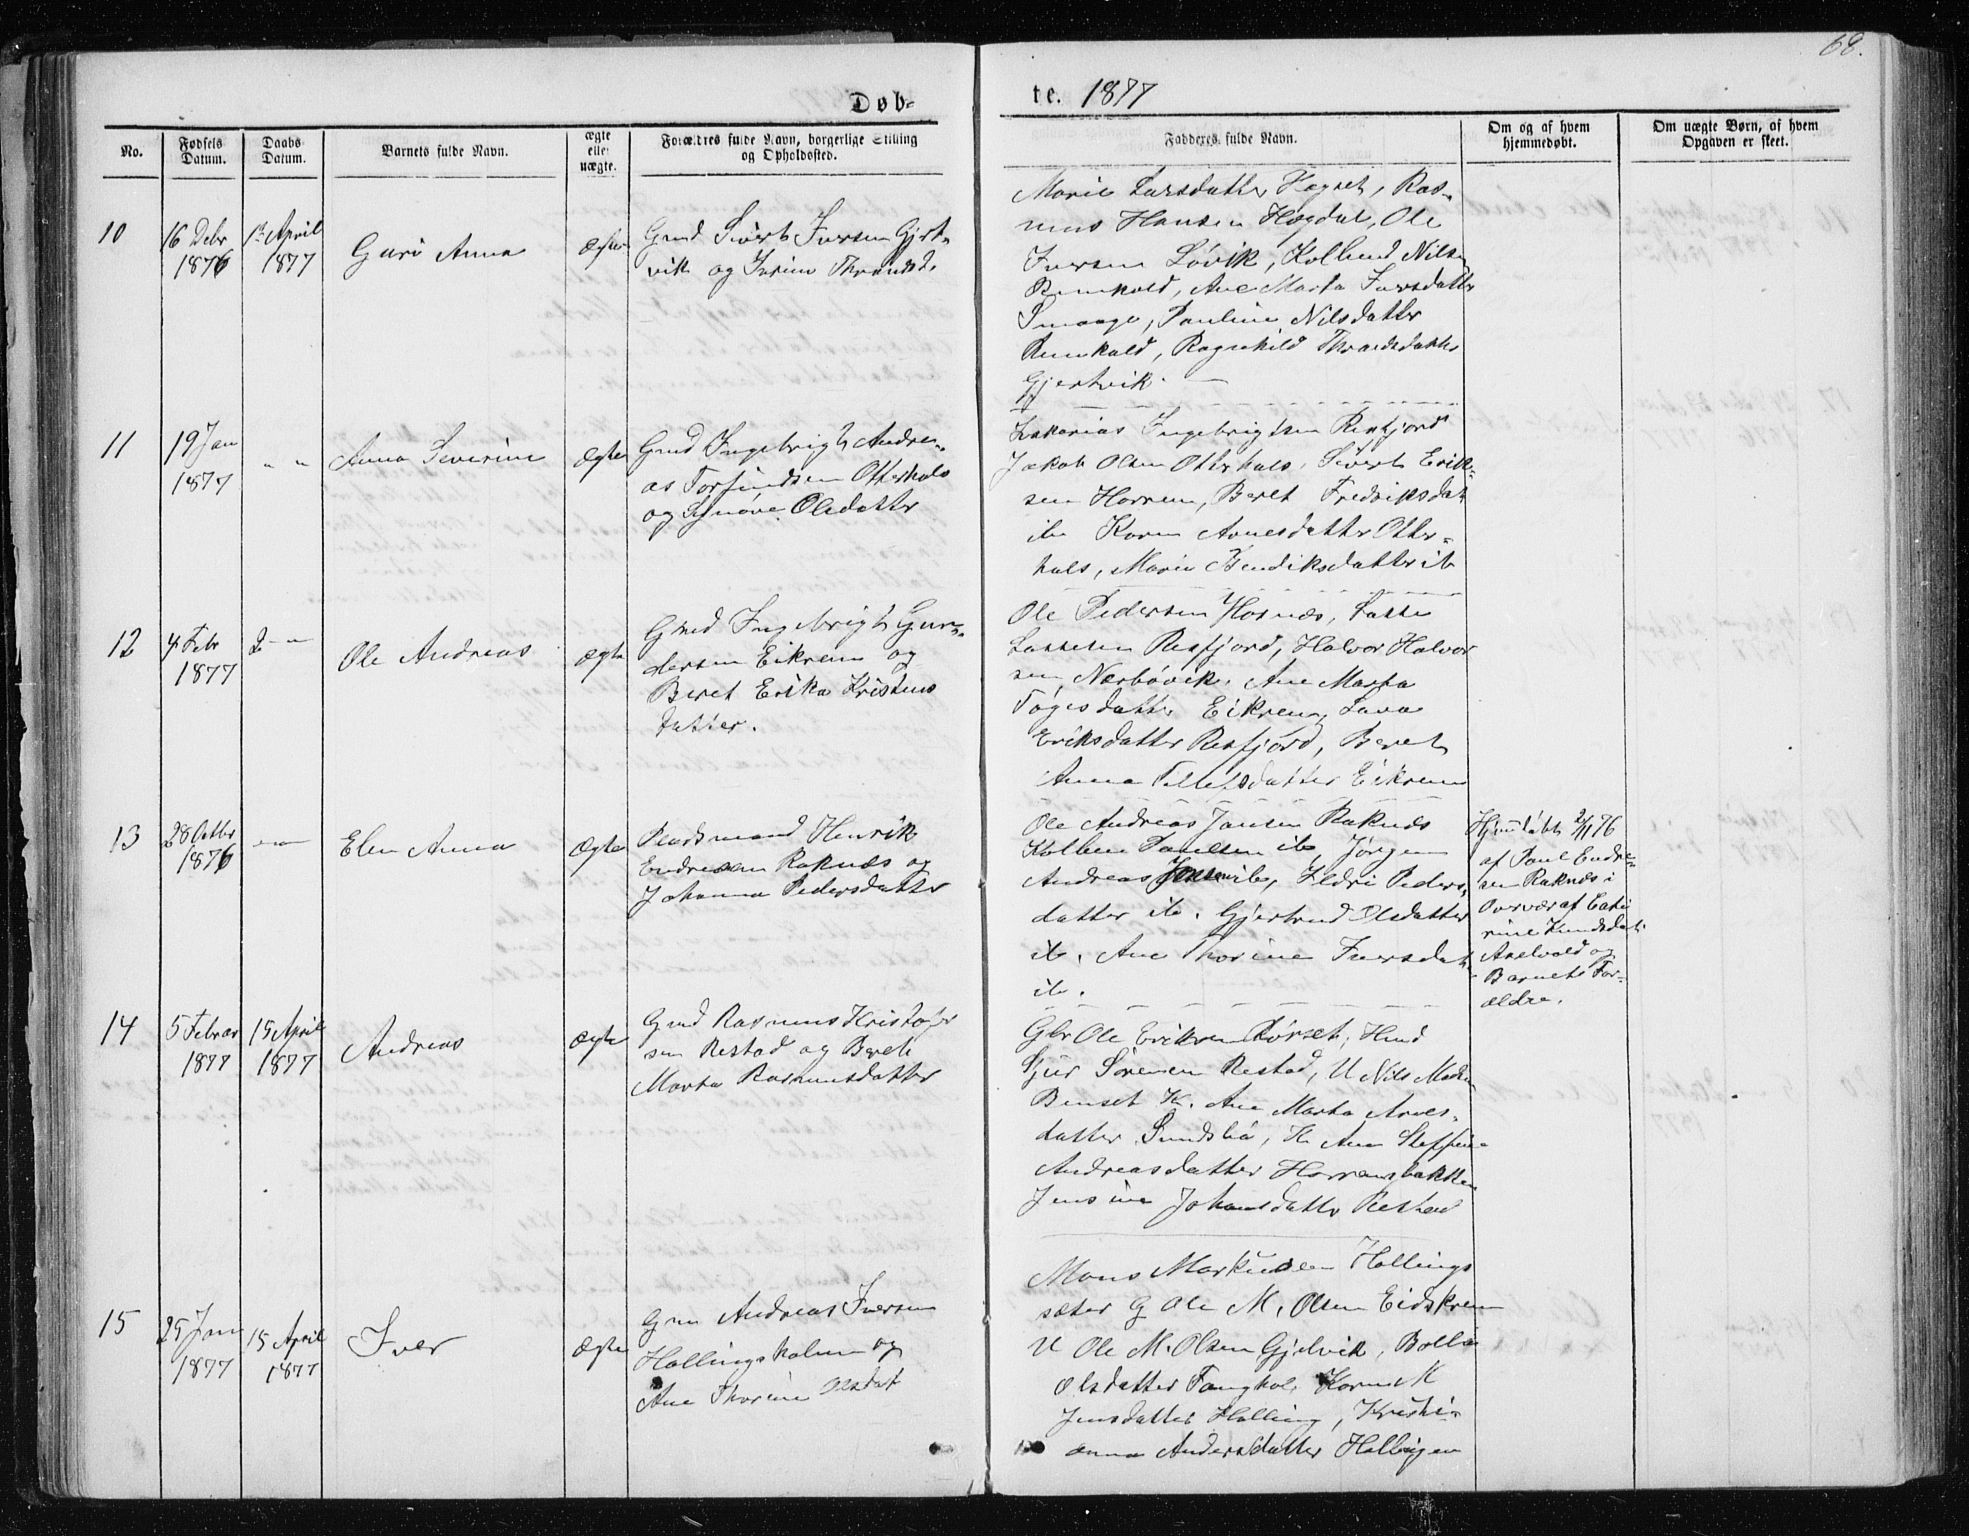 68.
Døb-
te. 1877
No.
Fødsels Datum.
Daabs Datum.
Barnets fulde Navn.
ægte eller uægte.
Forældres fulde Navn, borgerlige Stilling og Opholdssted.
Fadderes fulde Navn.
Om og af hvem hjemmedøbt.
Om uægte Børn, af hvem Opgaven er skeet.
10
16 Debr
1876
1st April
1877
Guri Anna
Ægte
Gmd Sivert Iversen Gjert-
vik og Thrandsd.
Marie Larsdatter Hagset, Ras-
mus Hansen Hogdal, Ole
Iversen Løvik, Kolbend Nilsen
Ane Marta Iversdatter
Smaage, Pauline Nilsdatter
Ragnhild Thrandsdatter
Gjertvik.
11
19 Jan
1877
" "
Anna Severine
Ægte
Gmd Ingebrigt Andre-
as Torfindsen Otterhals
og Synøve Olsdatter
Zakarias Ingebrigtsen Resfjord
Jakob Olsen Otterhals, Sivert Erik-
sen Harrem, Beret Fredriksdat
ib Karen Arnesdatter Otter-
hals, Marie Bendiksdatter ib
12
4 Febr
1877
2 - "
Ole Andreas
Ægte
Gmd Ingebrigt Gun-
dersen Eikrem og
Beret Erika Kristens
datter.
Ole Pedersen Hosnæs, Lasse
Lassesen Resfjord, Halvor Halvor
sen Nærbøvik, Ane Marta
datter Eikrem,
Eriksdatter Resfjord, Beret
Anna Tollefsdatter Eikrem
13
28 Octbr
1876
- " -
Elen Anna
Ægte
Pladsmand Henrik
Endresen Raknæs og
Johanna Pedersdatter
Ole Andreas Jansen Raknæs
Kolben Paulsen ib, Jørgen
Andreas Jensen ib, Ildri Peders-
datter ib. Gjertrud Olsdatter
ib. Ane Thorine Iversdat
ib.
Hjemdøbt 2/11 76
af Paul Endre-
sen Raknæs i
Overvær af Cathe
rine Knudsdat
Axelvold og
Barnets For-
ældre.
14
5 Februar
1877
15 April
1877
Andreas
Ægte
Gmd Rasmus Kristofer
sen Restad og Berete
Marta Rasmusdatter
Gbr Ole Eriksen Hmd
Sjur Sørensen Restad, U Nils Madsen
Benset K. Ane Marta Arnes-
datter Sundsbø, K. Ane Steffine
Andreasdatter Harremsbakken
Jensine Johansdatter Restad
15
25 Jan
1877
15 April
1877
Iver
Ægte
Gm Andreas Iversen
Hollingsholm og
Ane Thorine Olsdat
Mons Markusen Hollings
sæter G Ole M. Olsen Eidskrem
U Ole M. Olsen Gjelvik,
Olsdatter K
Jensdatter Holling, Kristi-
anna Andersdatter Hollingen